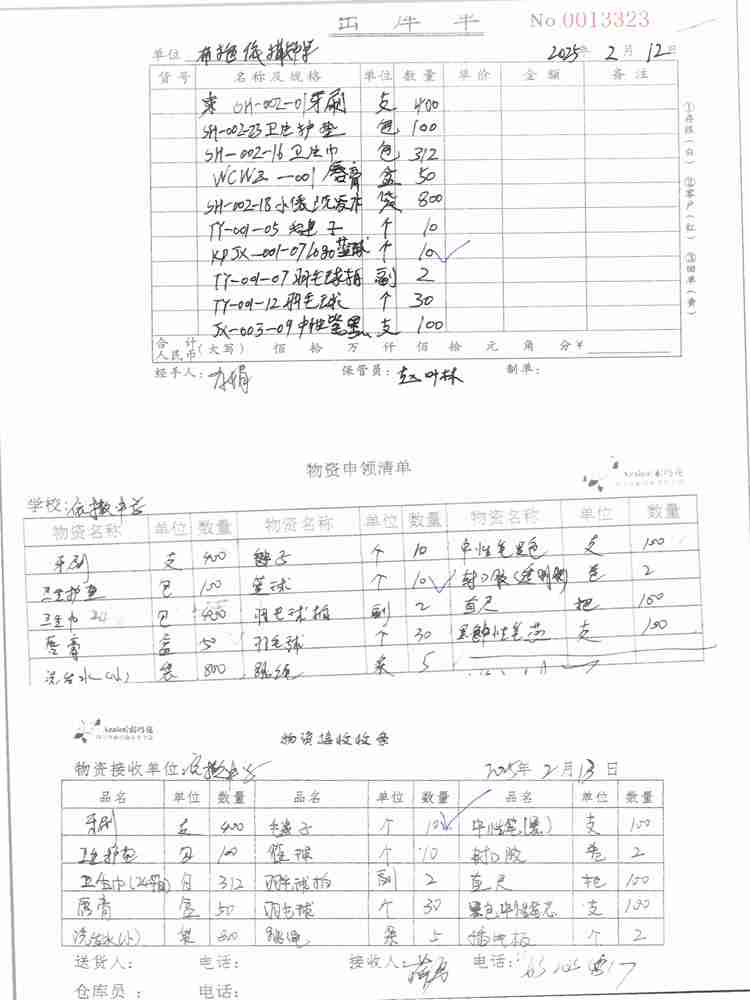 出库单 No 0013323
单位 2025年 2月 12日
货号 名称及规格 单位 数量 单价 金额 备注
SH-002-01牙刷 支 400
SH-002-23卫生护垫 包 100
SH-002-16卫生巾 包 312
唇膏 盒 50
SH-002-18 袋 800
TY-001-05 毽子 个 10
KPJX-001-07logo篮球 个 10
TY-001-07羽毛球拍 副 2
TY-001-12羽毛球 个 30
JX-003-09中性笔黑 支 100
合计人民币(大写) 佰 拾 万 仟 佰 拾 元 角 分¥
经手人: 保管员: 制单:
①存根(白) ②客户(红) ③回单(黄)
物资申领清单
学校:
物资名称 单位 数量 物资名称 单位 数量 物资名称 单位 数量
牙刷 支 400 毽子 个 10 支 100
卫生护垫 包 100 篮球 个 10 封口胶(透明 卷 2
卫生巾 包 400 羽毛球拍 副 2 直尺 把 100
唇膏 盒 50 羽毛球 个 30 支 100
洗发水(小) 袋 800 跳绳 条 5
物资接收收条
物资接收单位: 2025年 2月 13日
品名 单位 数量 品名 单位 数量 品名 单位 数量
牙刷 支 400 毽子 个 10 中性笔(黑) 支 100
卫生护垫 包 100 篮球 个 10 封口胶 卷 2
卫生巾 包 312 羽毛球拍 副 2 直尺 把 100
唇膏 盒 50 羽毛球 个 30 黑色中性笔芯 支 100
洗发水(小) 袋 800 跳绳 条 5 插电板 个 2
送货人: 电话: 接收人: 电话:
仓库员: 电话: